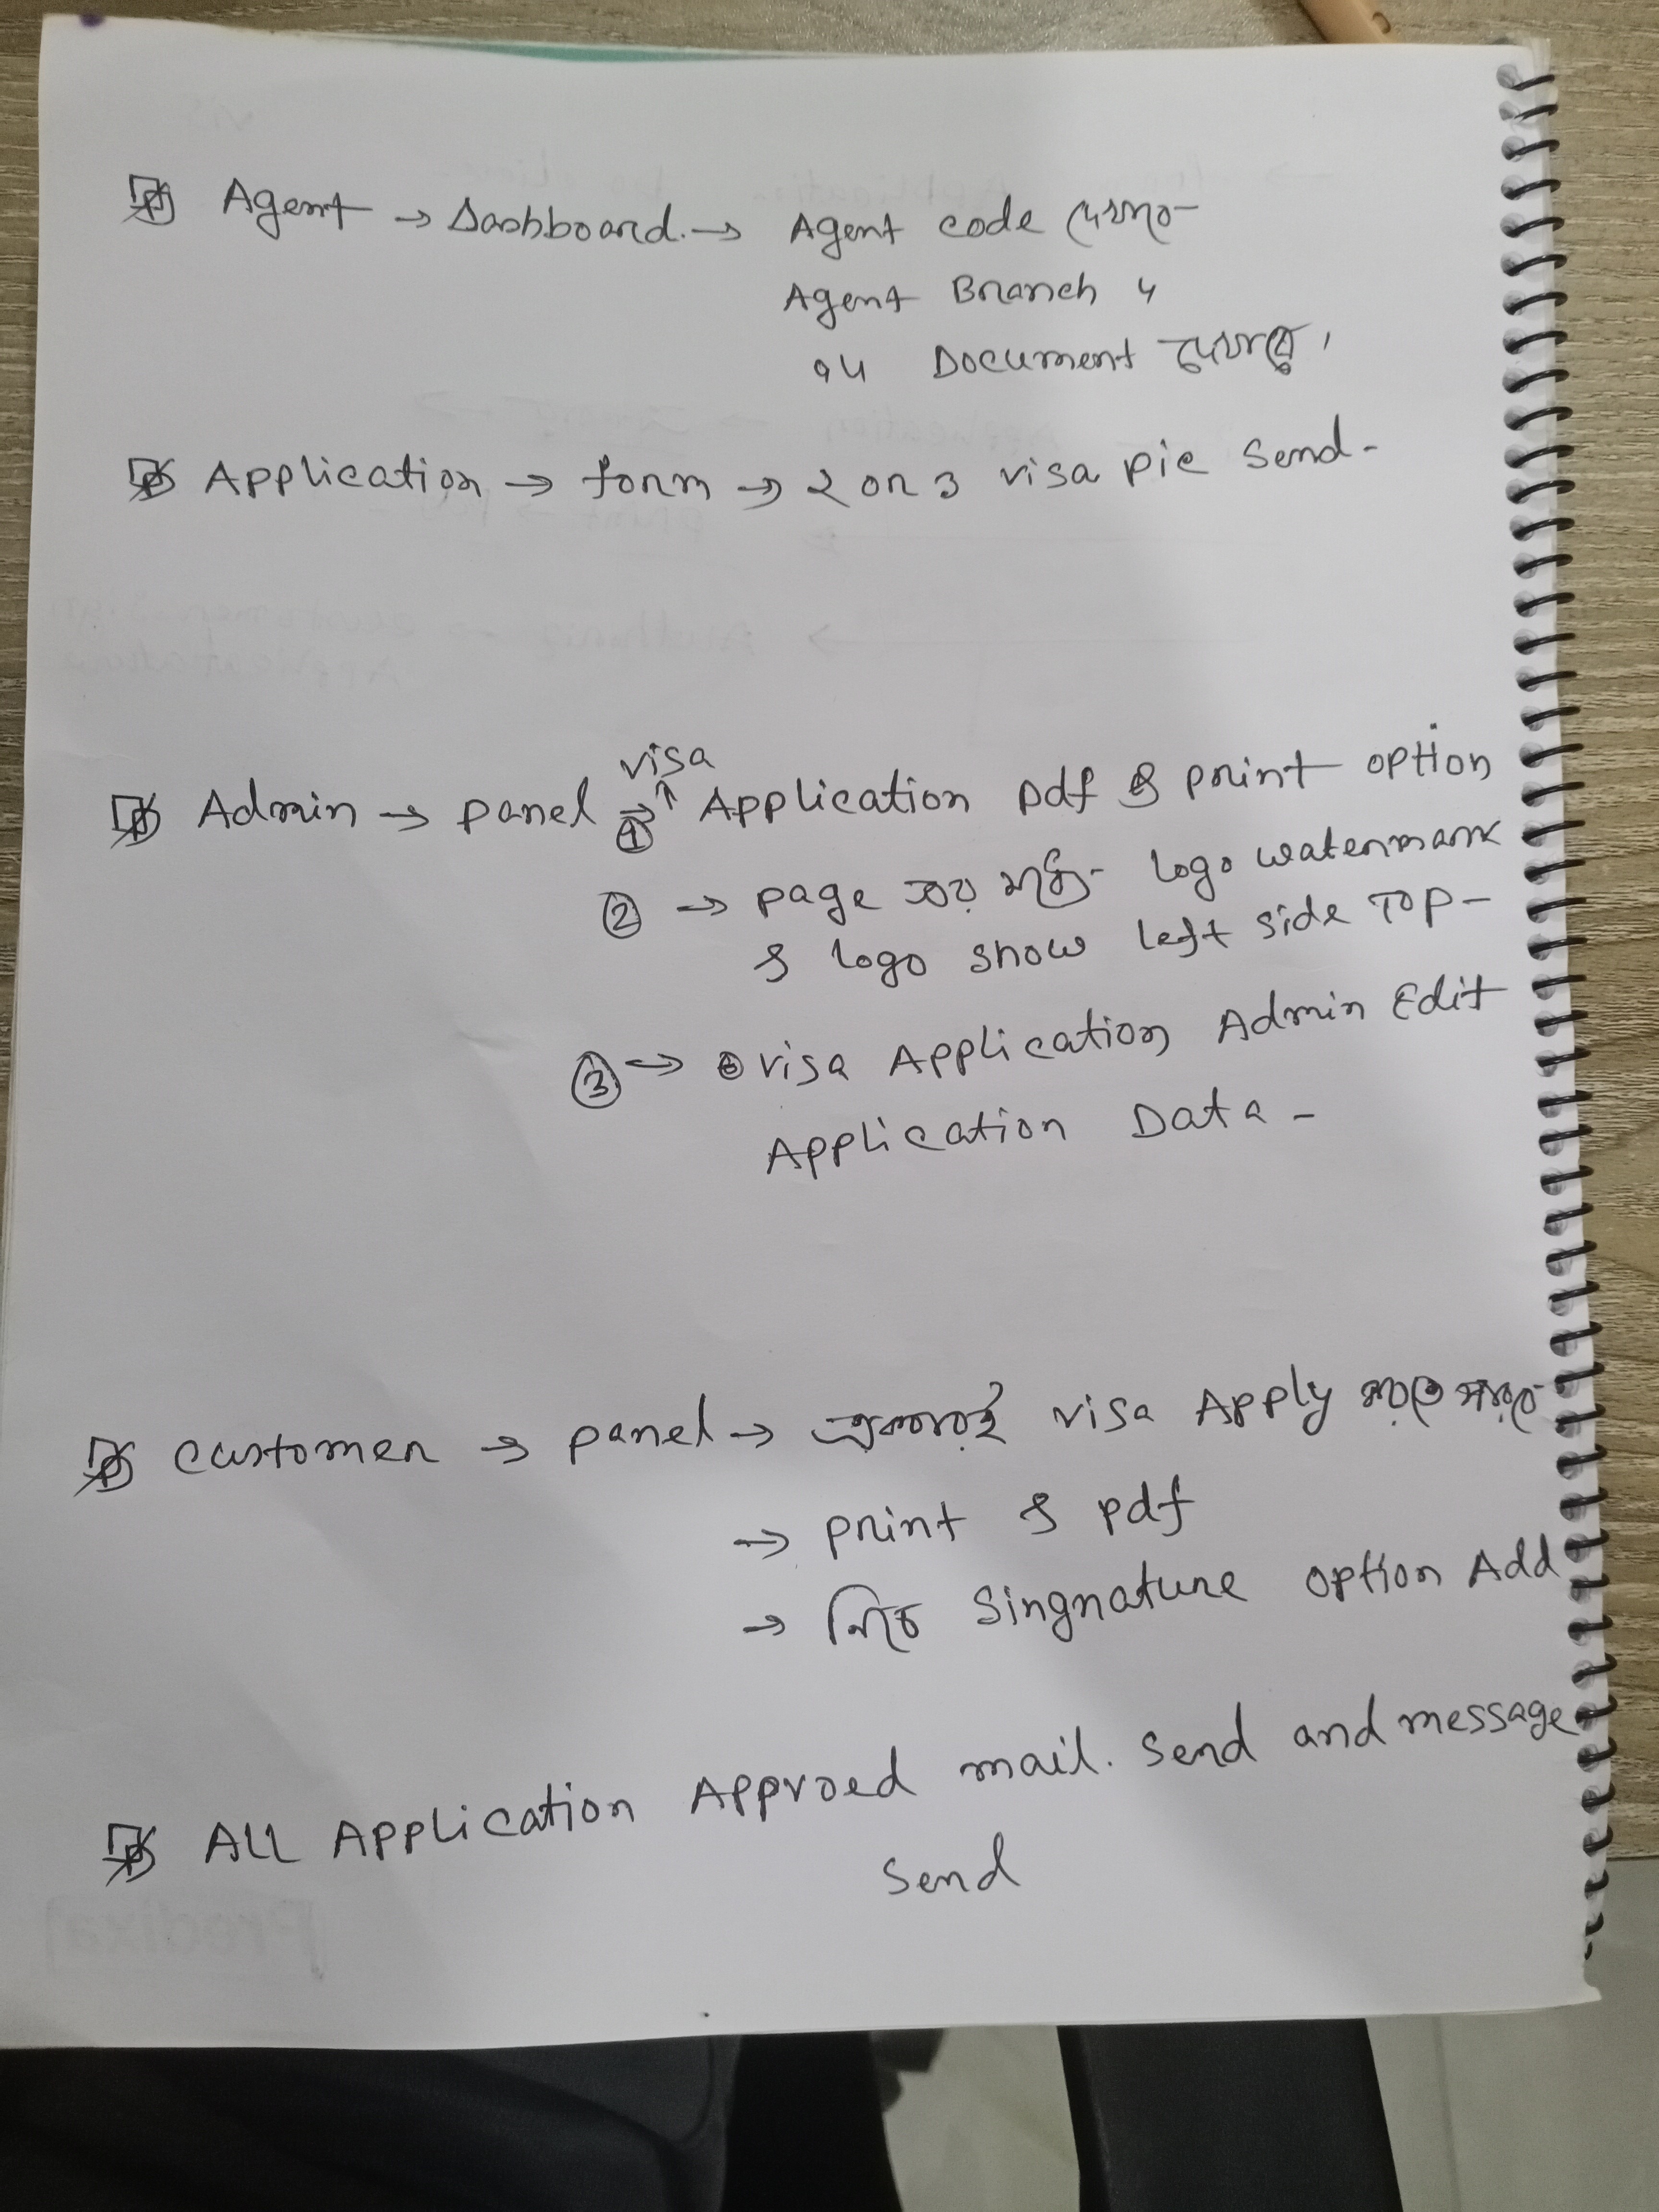 Agent → Dashboard. → Agent code দেখানো-
Agent Branch
Document দেখাবে।
Application → form → 2 or 3 visa pic send-
visa
Admin → panel → ① Application pdf & print option
② → page এর মধ্যে- logo watermark
& logo show left side TOP-
③ → visa Application Admin Edit
Application Data -
customer → panel → visa Apply
→ print & pdf
→ নিচে Singnature option Add
ALL Application Approed mail. send and message
send